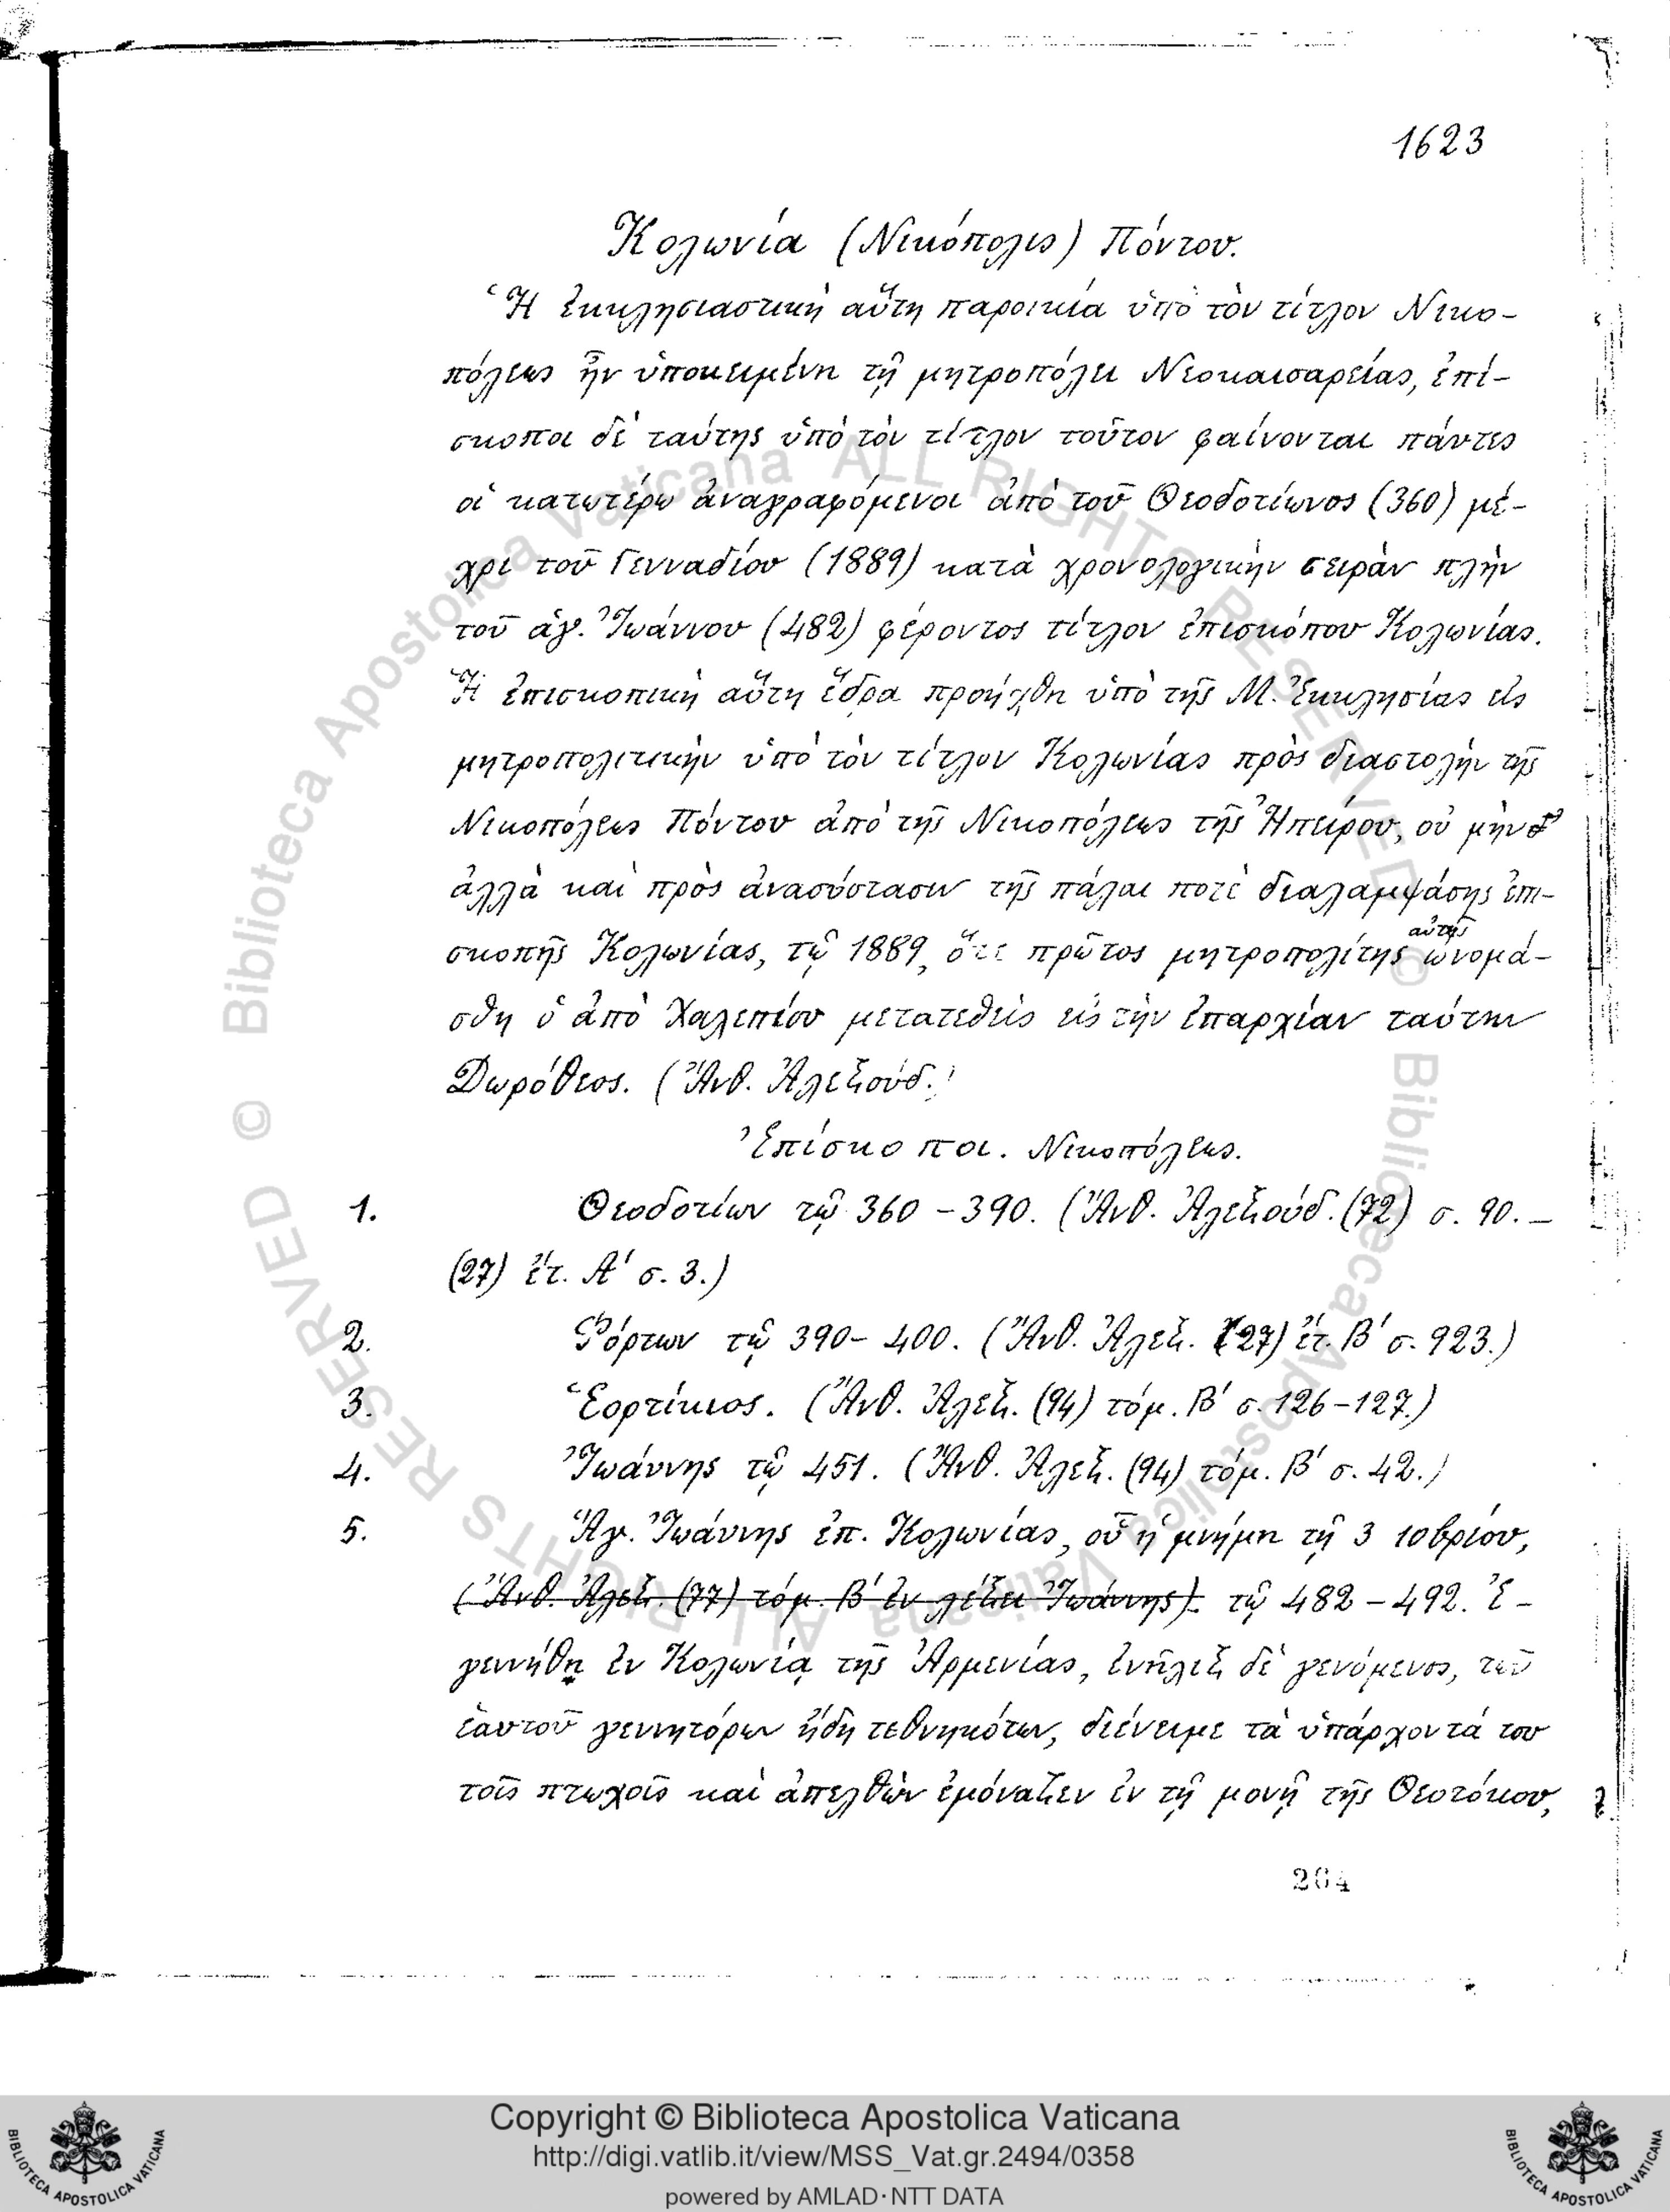 1623
Κολωνία (Νικόπολις) Πόντου.
Ἡ ἐκκλησιαστικὴ αὕτη παροικία ὑπὸ τὸν τίτλον Νικο-
πόλεως ἦν ὑποκειμένη τῇ μητροπόλει Νεοκαισαρείας, ἐπί-
σκοποι δὲ ταύτης ὑπὸ τὸν τίτλον τοῦτον φαίνονται πάντες
οἱ κατωτέρω ἀναγραφόμενοι ἀπὸ τοῦ Θεοδοτίωνος (360) μέ-
χρι τοῦ Γενναδίου (1889) κατὰ χρονολογικὴν σειρὰν πλὴν
τοῦ ἁγ. Ἰωάννου (482) φέροντος τίτλον ἐπισκόπου Κολωνίας.
Ἡ ἐπισκοπικὴ αὕτη ἕδρα προήχθη ὑπὸ τῆς Μ. Ἐκκλησίας εἰς
μητροπολιτικὴν ὑπὸ τὸν τίτλον Κολωνίας πρὸς διαστολὴν τῆς
Νικοπόλεως Πόντου ἀπὸ τῆς Νικοπόλεως τῆς Ἠπείρου, οὐ μὴν
ἀλλὰ καὶ πρὸς ἀνασύστασιν τῆς πάλαι ποτὲ διαλαμψάσης ἐπι-
σκοπῆς Κολωνίας, τῷ 1889, ὅτε πρῶτος μητροπολίτης αὐτῆς ὠνομά-
σθη ὁ ἀπὸ Χαλεπίου μετατεθεὶς εἰς τὴν ἐπαρχίαν ταύτην
Δωρόθεος. (Ἄνθ. Ἀλεξούδ.)
Ἐπίσκοποι. Νικοπόλεως.
1. Θεοδοτίων τῷ 360-390. (Ἄνθ. Ἀλεξούδ. (72) σ. 90.—
(27) ἔτ. Α' σ. 3.)
2. Φόρτων τῷ 390-400. (Ἄνθ. Ἀλεξ. (27) ἔτ. Β' σ. 923.)
3. Ἑορτίκιος. (Ἄνθ. Ἀλεξ. (94) τόμ. Β' σ. 126-127.)
4. Ἰωάννης τῷ 451. (Ἄνθ. Ἀλεξ. (94) τόμ. Β' σ. 42.)
5. Ἅγ. Ἰωάννης ἐπ. Κολωνίας, οὗ ἡ μνήμη τῇ 3 10βρίου,
(Ἄνθ. Ἀλεξ. (77) τόμ. Β' ἐν λέξει Ἰωάννης). τῷ 482-492. Ἐ-
γεννήθη ἐν Κολωνίᾳ τῆς Ἀρμενίας, ἐνῆλιξ δὲ γενόμενος, τῶν
ἑαυτοῦ γεννητόρων ἤδη τεθνηκότων, διένειμε τὰ ὑπάρχοντά του
τοῖς πτωχοῖς καὶ ἀπελθὼν ἐμόναζεν ἐν τῇ μονῇ τῆς Θεοτόκου,
204
© Biblioteca Apostolica Vaticana ALL RIGHTS RESERVED © Biblioteca Apostolica Vaticana ALL RIGHTS RESERVED
Copyright © Biblioteca Apostolica Vaticana
http://digi.vatlib.it/view/MSS_Vat.gr.2494/0358
powered by AMLAD·NTT DATA
BIBLIOTECA APOSTOLICA VATICANA
BIBLIOTECA APOSTOLICA VATICANA